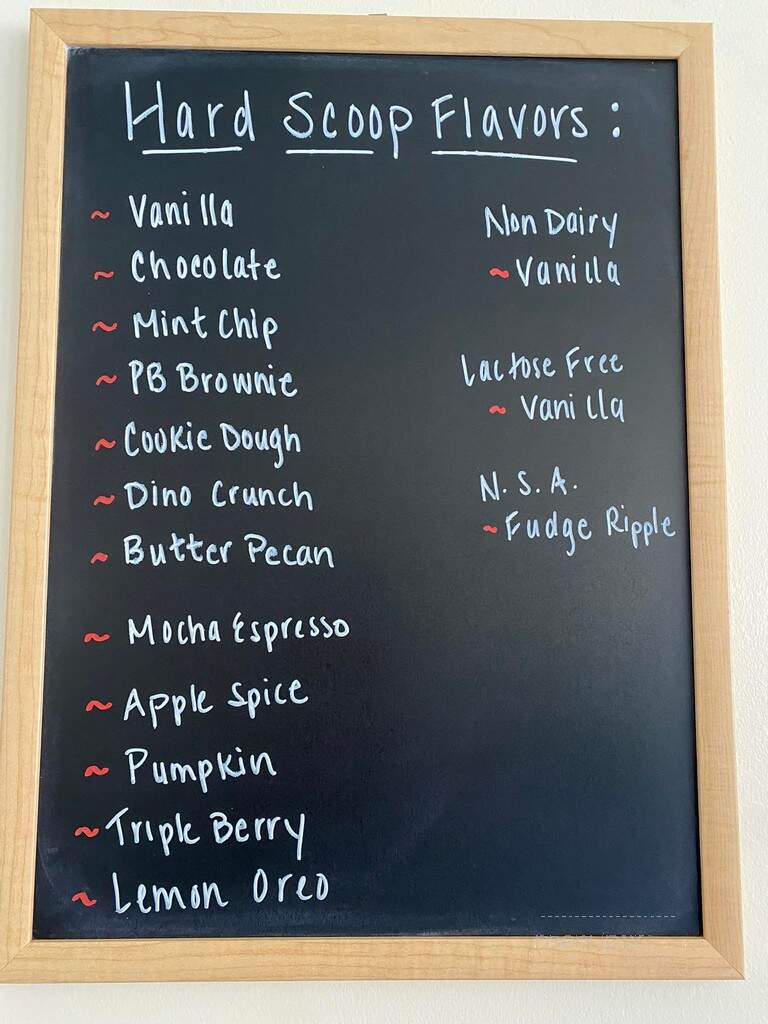 Hard Scoop Flavors:
~ Vanilla
~ Chocolate
~ Mint Chip
~ PB Brownie
~ Cookie Dough
~ Dino Crunch
~ Butter Pecan
~ Mocha Espresso
~ Apple Spice
~ Pumpkin
~ Triple Berry
~ Lemon Oreo
Non Dairy
~ Vanilla
Lactose Free
~ Vanilla
N. S. A.
~ Fudge Ripple